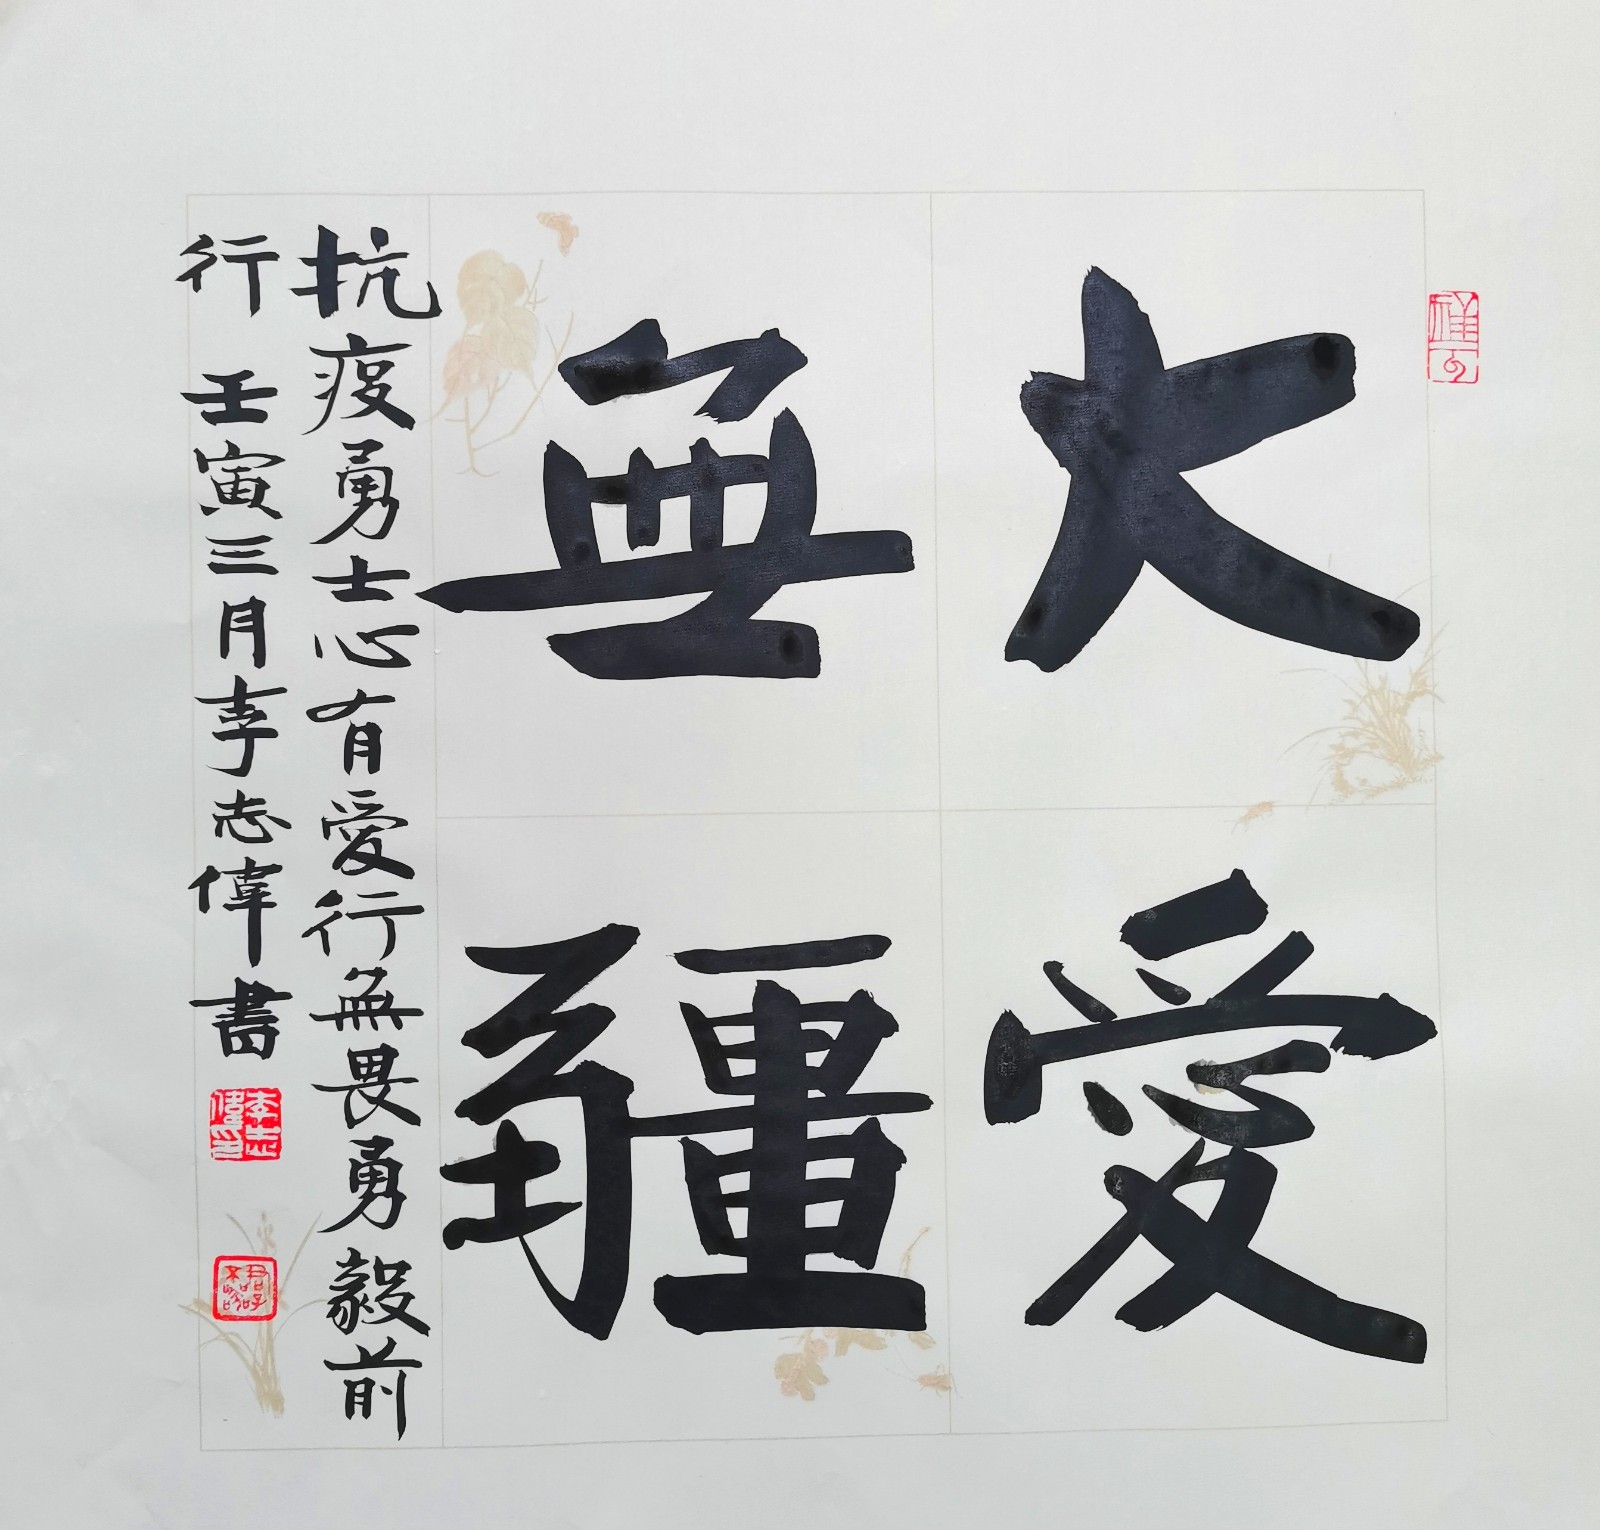 大愛
無疆
抗疫勇士心有愛行無畏勇毅前
行 壬寅三月李志偉書
李志偉印